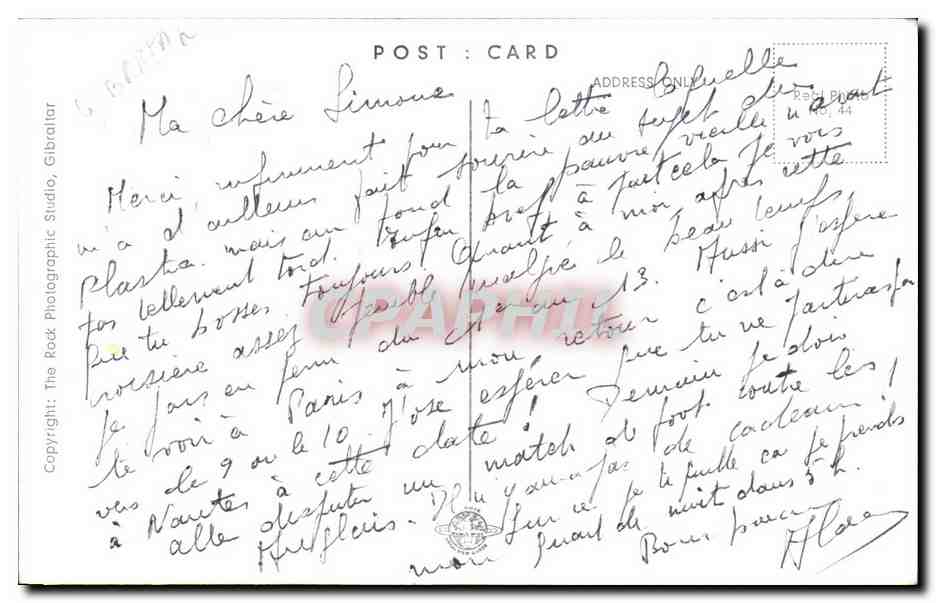 POST : CARD
ADDRESS ONLY
Real Photo
No. 44
Copyright: The Rock Photographic Studio, Gibraltar
Ma chère Simone
Merci infiniment pour ta lettre laquelle
m'a d'ailleurs fait sourire au sujet du
Plastic mais au fond la pauvre vieille n'avait
pas tellement tord. Enfin bref à part cela je vois
que tu bosses toujours. Quant à moi après cette
croisière assez pénible malgré le beau temps
je suis en perm du 4 au 13. Aussi j'espère
te voir à Paris à mon retour c'est à dire
vers le 9 ou le 10. J'ose espérer que tu ne partiras pas
à Nantes à cette date! Demain je dois
aller disputer un match de foot contre les
Anglais. Il n'y aura pas de cadeaux!
Sur ce je te quitte car je prends
mon quart de nuit dans 3 h.
Bons baisers
Alan
CPARHIII